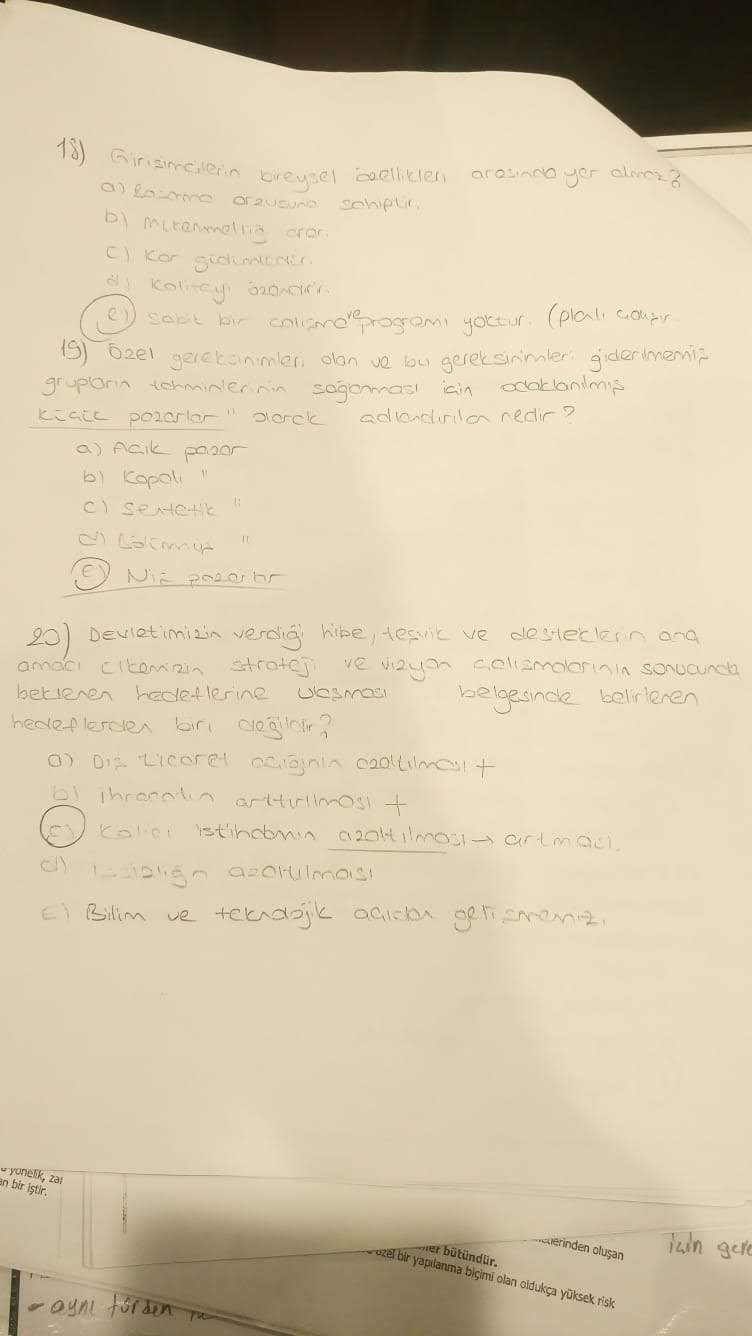 18) Girişimcilerin bireysel özellikleri arasında yer almaz?
a) Başarma arzusuna sahiptir.
b) Mükemmelliği arar.
c) Kar güdümlüdür.
d) Kaliteyi özendirir.
e) Sabit bir çalışma ve programı yoktur. (planlı çalışır
19) Özel gereksinimleri olan ve bu gereksinimleri giderilmemiş
grupların tahminlerinin sağlanması için odaklanılmış
küçük pazarlar" olarak adlandırılan nedir?
a) Açık pazar
b) Kapalı "
c) Sentetik "
d) "
e) Niş pazarlar
20) Devletimizin verdiği hibe, teşvik ve desteklerin ana
amacı ülkemizin strateji ve vizyon çalışmalarının sonucunda
beklenen hedeflerine ulaşması belgesinde belirlenen
hedeflerden biri değildir?
a) Dış ticaret açığının azaltılması +
b) İhracatın arttırılması +
c) Kalıcı istihdamın azaltılması → artması.
d) İşsizliğin azaltılması
e) Bilim ve teknolojik açıdan gelişmemiz.
yönelik, zai
an bir iştir.
bütündür.
özel bir yapılanma biçimi olan oldukça yüksek risk
oluşan
için gere
- aynı türden